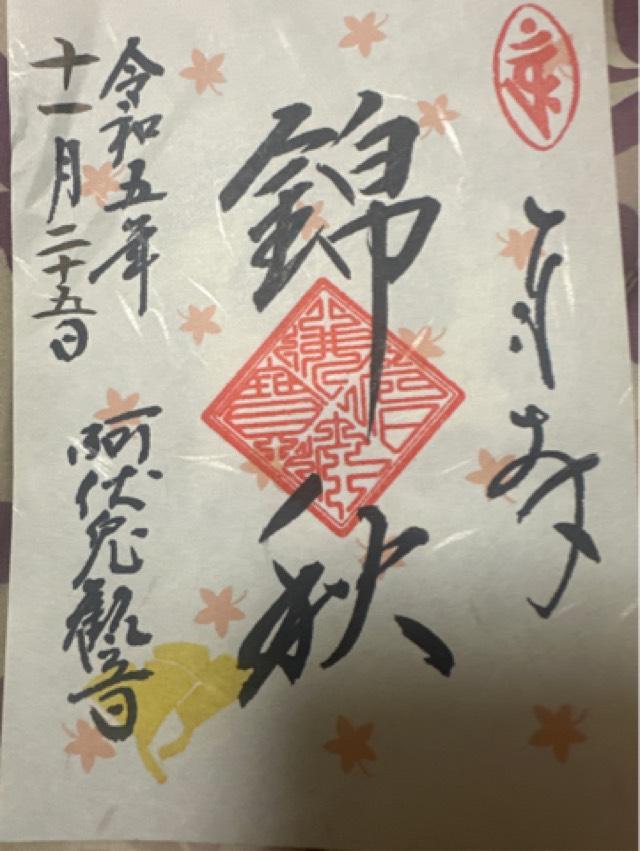 奉拝
錦秋
令和五年
十一月二十五日
阿伏兎観音